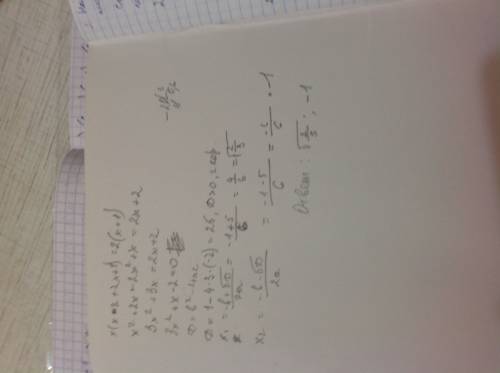 x² + 2x + 2x² + x = 2x + 2
3x² + 3x = 2x + 2
3x² + x - 2 = 0
D = b² - 4ac
D = 1 - 4·3·(-2) = 25, D > 0, 2 кор
x₁ = (-b + √D)/2a = (-1 + 5)/6 = 4/6 = 2/3
x₂ = (-b - √D)/2a = (-1 - 5)/6 = -6/6 = -1
Ответ: 2/3 ; -1